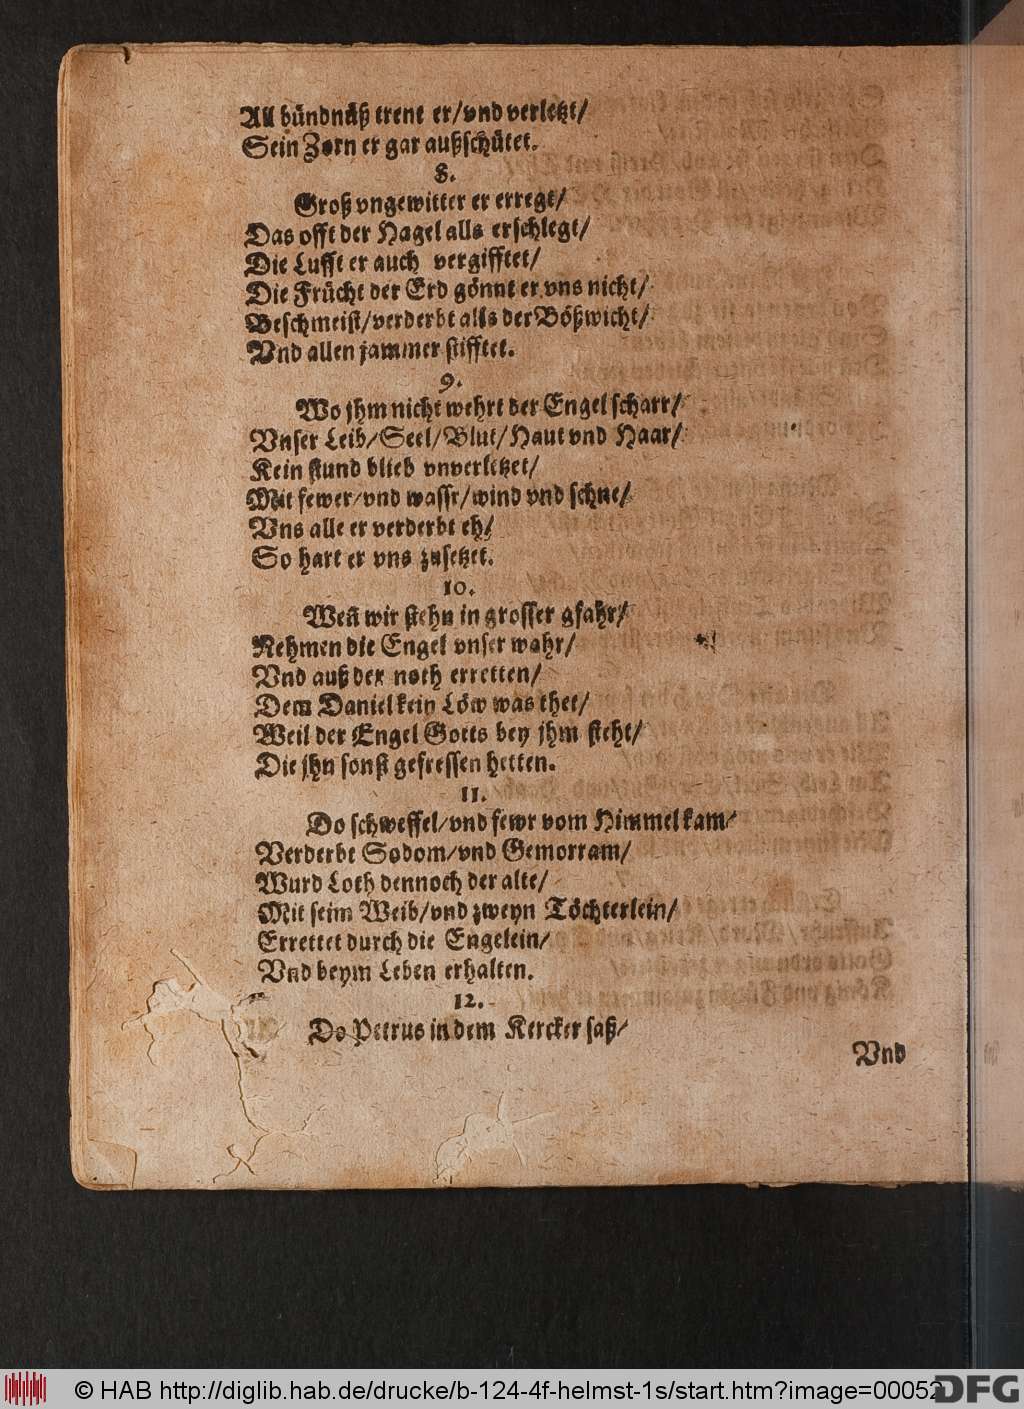 All bündnäß trent er/vnd verletzt/
Sein Zorn er gar außschütet.
8.
Groß vngewitter er erregt/
Das offt der Hagel alls erschlegt/
Die Lufft er auch vergifftet/
Die Frücht der Erd gönnt er vns nicht/
Beschmeist/verderbt alls der Bößwicht/
Vnd allen jammer stifftet.
9.
Wo jhm nicht wehrt der Engel scharr/
Vnser Leib/Seel/Blut/Haut vnd Haar/
Kein stund blieb vnverletzet/
Mit fewer/vnd wassr/wind vnd schne/
Vns alle er verderbt eh/
So hart er vns zusetzet.
10.
Weñ wir stehn in grosser gfahr/
Nehmen die Engel vnser wahr/
Vnd auß der noth erretten/
Dem Daniel kein Löw was thet/
Weil der Engel Gotts bey jhm steht/
Die jhn sonst gefressen hetten.
11.
Do schweffel/vnd fewr vom Himmel kam/
Verderbt Sodom/vnd Gemorram/
Wurd Loth dennoch der alte/
Mit seim Weib/vnd zweyn Töchterlein/
Errettet durch die Engelein/
Vnd beym Leben erhalten.
12.
Do Petrus in dem Kercker saß/
Vnd
© HAB http://diglib.hab.de/drucke/b-124-4f-helmst-1s/start.htm?image=00052
DFG